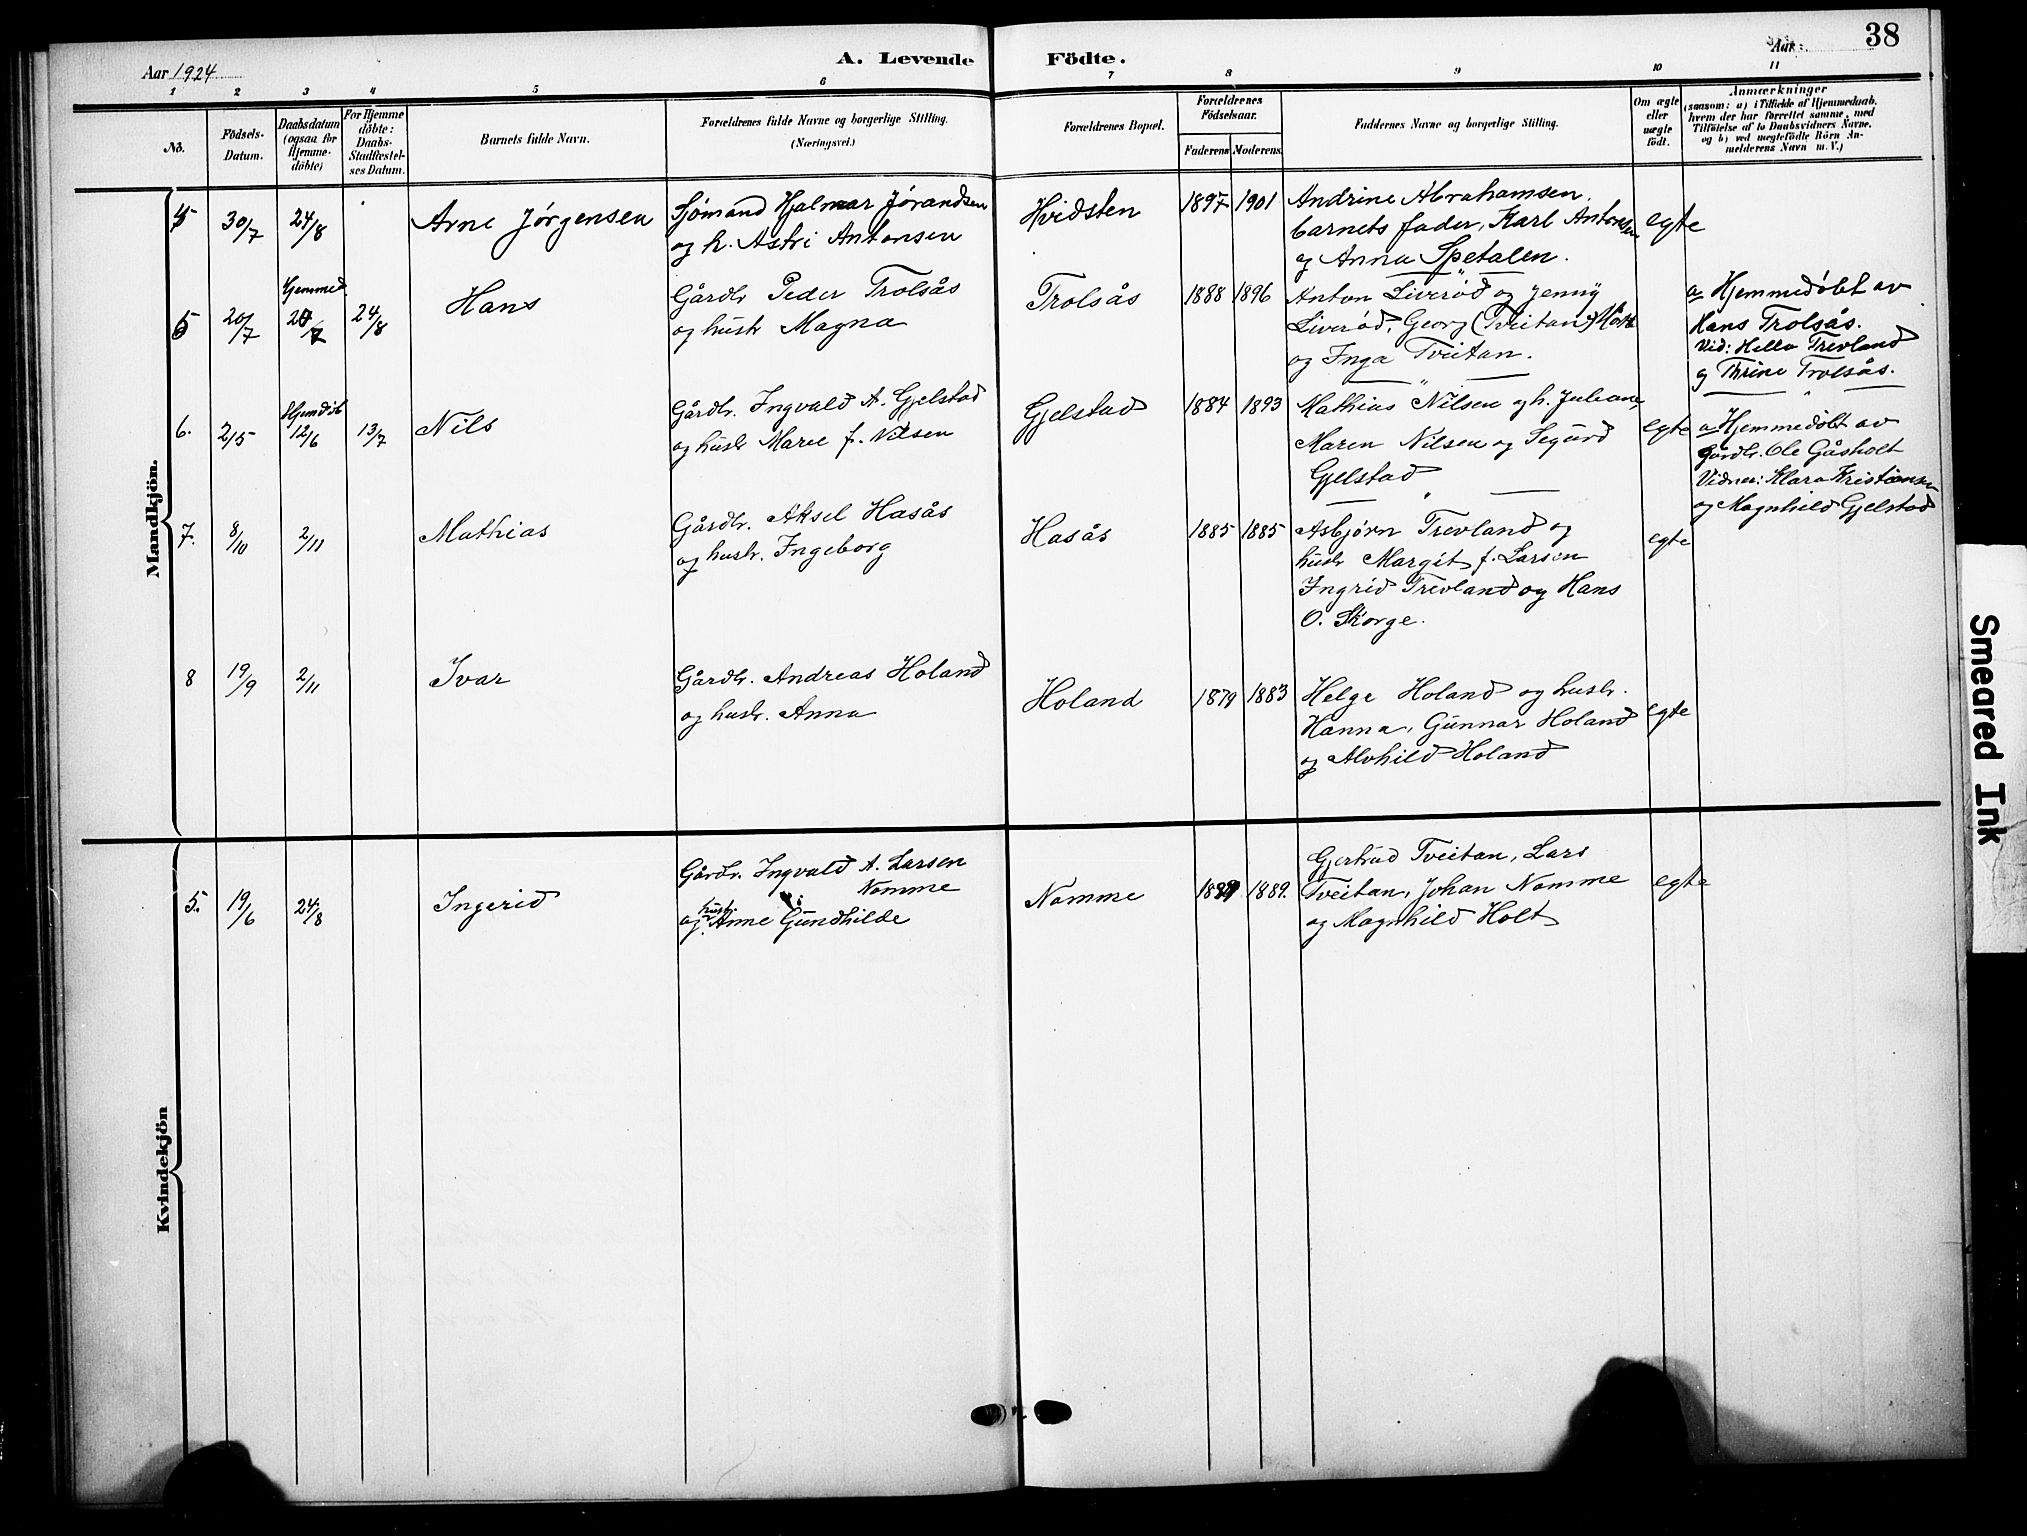 38
Aar 1924
A. Levende Födte.
Aar
1 2 3 4 5 6 7 8 9 10 11
No.
Födsels-Datum.
Daabsdatum (ogsaa for Hjemme-döbte)
For Hjemme döbte: Daabs-Stadfæstel-ses Datum.
Barnets fulde Navn.
Forældrenes fulde Navne og borgerlige Stilling.
(Næringsvei.)
Forældrenes Bopæl.
Forældrenes Födselsaar.
Faderens Moderens
Faddernes Navne og borgerlige Stilling.
Om ægte eller uægte födt.
Anmærkninger
(saasom: a) i Tilfælde af Hjemmedaab,
hvem der har forrettet samme, med
Tilföielse af to Daabsvidners Navne,
og b) ved uægtefödte Börn An-
melderens Navn m. V.)
Mandkjön.
30/7 24/8 Arne Jørgensen
Sjømand Hjalmar Jørandsen
og h. Astri Antonsen
Hvidsten 1897 1901
Andrine Abrahamsen,
barnets fader, Karl Antonsen
og Anna Spetalen.
egte
5 20/7 24/8 Hans
Gårdbr Peder Trolsås
og hustr Magna
Trolsås 1888 1896
Anton Liverød og Jenny
Liverød, Georg (Tveitan)
og Inga Tveitan.
a Hjemmedøbt av
Hans Trolsås.
Vid: Hella Trevland
og Thrine Trolsås.
6. 2/5 12/6 13/7 Nils
Gårdbr. Ingvald A. Gjelstad
og hustr Maree f. Nilsen
Gjelstad 1884 1893
Mathias Nilsen og h. Juliane,
Maren Nilsen og Sigurd
Gjelstad
egte
a Hjemmedøbt av
gårdbr. Ole Gåsholt
Vidner: Klara Kristiansen
og Magnhild Gjelstad
7. 8/10 2/11 Mathias
Gårdbr. Aksel Hasås
og hustr. Ingeborg
Hasås 1885 1885
Asbjørn Trevland og
hustr Margit f. Larsen
Ingrid Trevland og Hans
O. Skorge.
egte
8 19/9 2/11 Ivar
Gårdbr. Andreas Holand
og hustr. Anna
Holand 1879 1883
Helge Holand og hustr.
Hanna, Gunnar Holand
og Alvhild Holand
egte
Kvindekjön
5. 19/6 24/8 Ingerid
Gårdbr. Ingvald A. Larsen
Nomme
og hustr. Anne Gundhilde
Nomme 1889.
Gjertrud Tveitan, Lars
Tveitan, Johan Nomme
og Magnhild Holt
egte
Smeared Ink